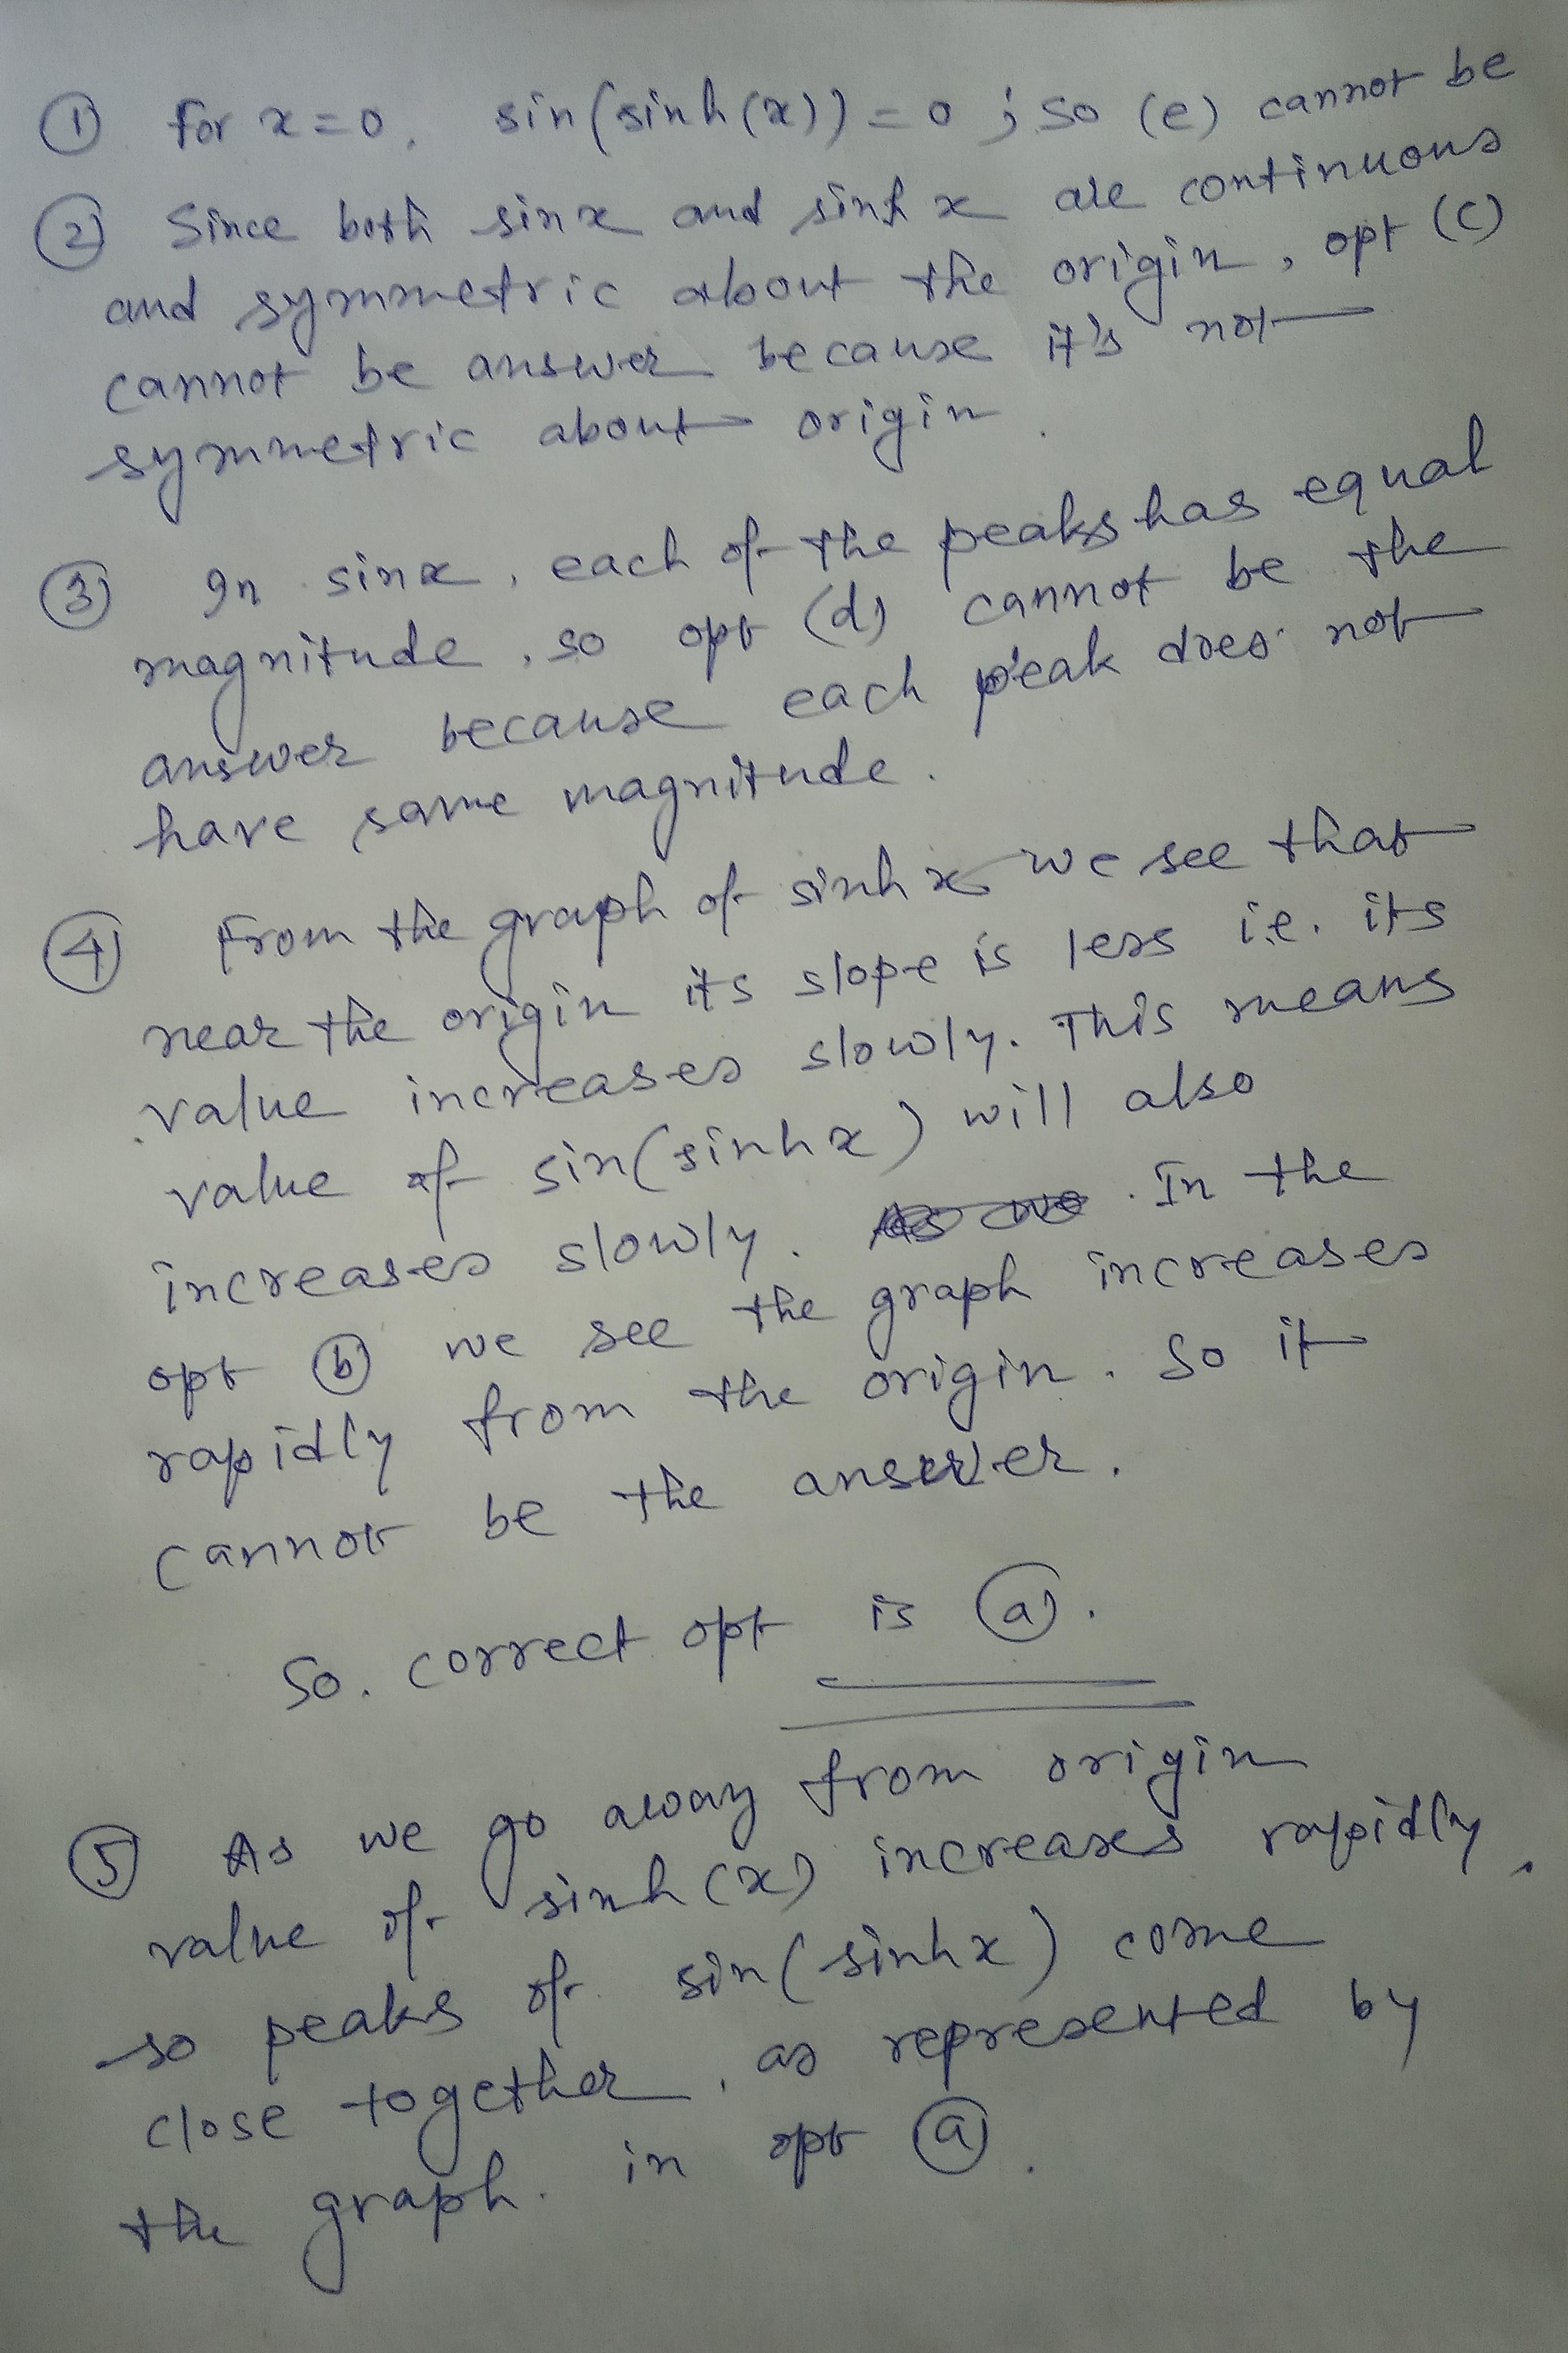 ① for x=0, sin(sinh(x))=0 ; so (e) cannot be
② Since both sin x and sinh x are continuous
and symmetric about the origin, opt (c)
cannot be answer because it's not
symmetric about origin.
③ In sin x, each of the peaks has equal
magnitude, so opt (d) cannot be the
answer because each peak does not
have same magnitude.
④ From the graph of sinh x we see that
near the origin its slope is less i.e. its
value increases slowly. This means
value of sin(sinh x) will also
increases slowly. . In the
opt ⓑ we see the graph increases
rapidly from the origin. So it
cannot be the answer.
So. correct opt is ⓐ.
⑤ As we go away from origin
value of sinh(x) increases rapidly,
so peaks of sin(sinh x) come
close together, as represented by
the graph. in opt ⓐ.